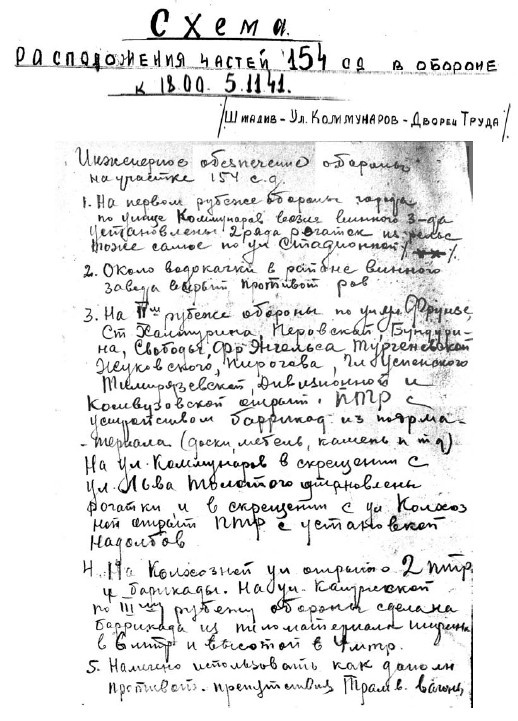 Схема
расположения частей 154 сд в обороне
к 18.00 5.11.41.
/Штадив – Ул. Коммунаров – Дворец Труда/
Инженерное обеспечение обороны
на участке 154 с.д.
1. На первом рубеже обороны города
по улице Коммунаров возле винного з-да
установлены 2 ряда рогаток из рельс
тоже самое по ул Стадионной
2. Около водокачки в районе винного
завода вырыт противот ров
3. На II рубеже обороны по ул. ул. Фрунзе,
Ст Халтурина, Перовской, Бундури-
на, Свободы, Фр Энгельса Тургеневской
Жуковского, Пирогова, Гл Успенского
Тимирязевской, Дивизионной и
Комвузовской открыт. ПТР с
устройством баррикад из подрма-
-териала (доски, мебель, камень и т д)
На ул. Коммунаров в скрещении с
ул. Льва Толстого установлены
рогатки и в скрещении с ул Колхоз
ной открыт ПТР с установкой
надолбов
4. На Колхозной ул открыто 2 птр
и барикады. На ул. Калужской
по III рубежу обороны сделана
баррикада из пиломатериала ширина
в 6 мтр и высотой в 4 мтр.
5. Намечено использовать как дополн
противот. препятствия Трамв. вагоны,